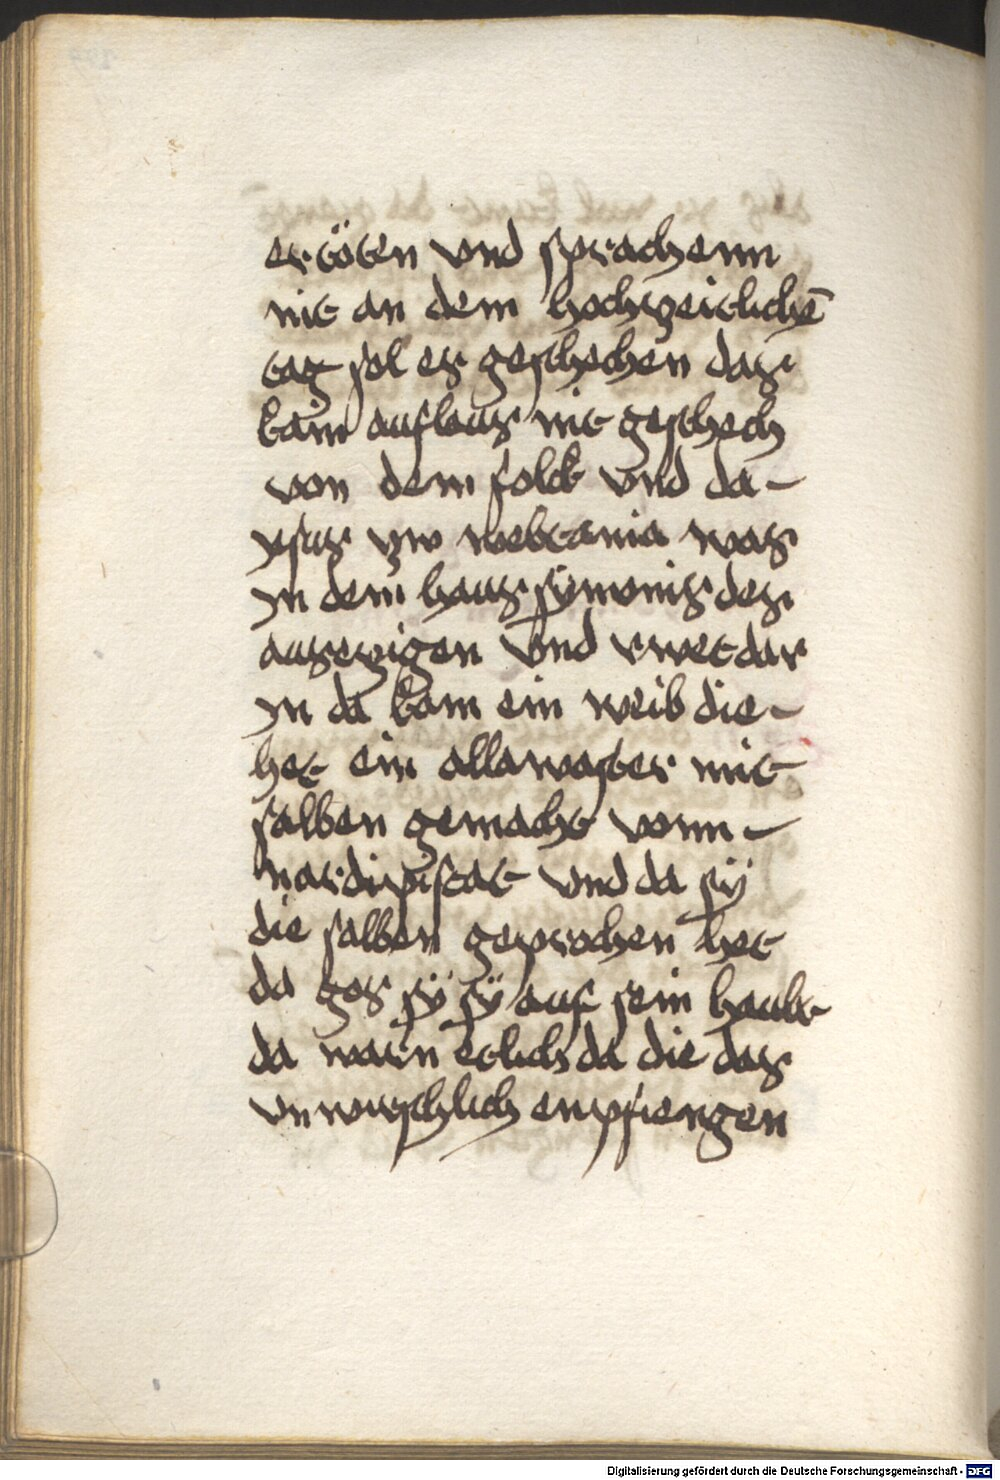 ertöten vnd sprachenn
nit an dem hochzeitlichē
tag sol es geschechen das
kain auflaus nit geschech
von dem folck vnd da
ysus zw webtania was
yn dem haus symonis des
ausezigen vnd rwet dar
yn da kam ein weib die
het ein allawaster mit
salben gemacht vonn
nardipistat vnd da sÿ
die salben geprochen het
da gos sÿ sÿ auf sein haubt
da warn etlich da die das
vnwirschlich enpfiengen
Digitalisierung gefördert durch die Deutsche Forschungsgemeinschaft - DFG